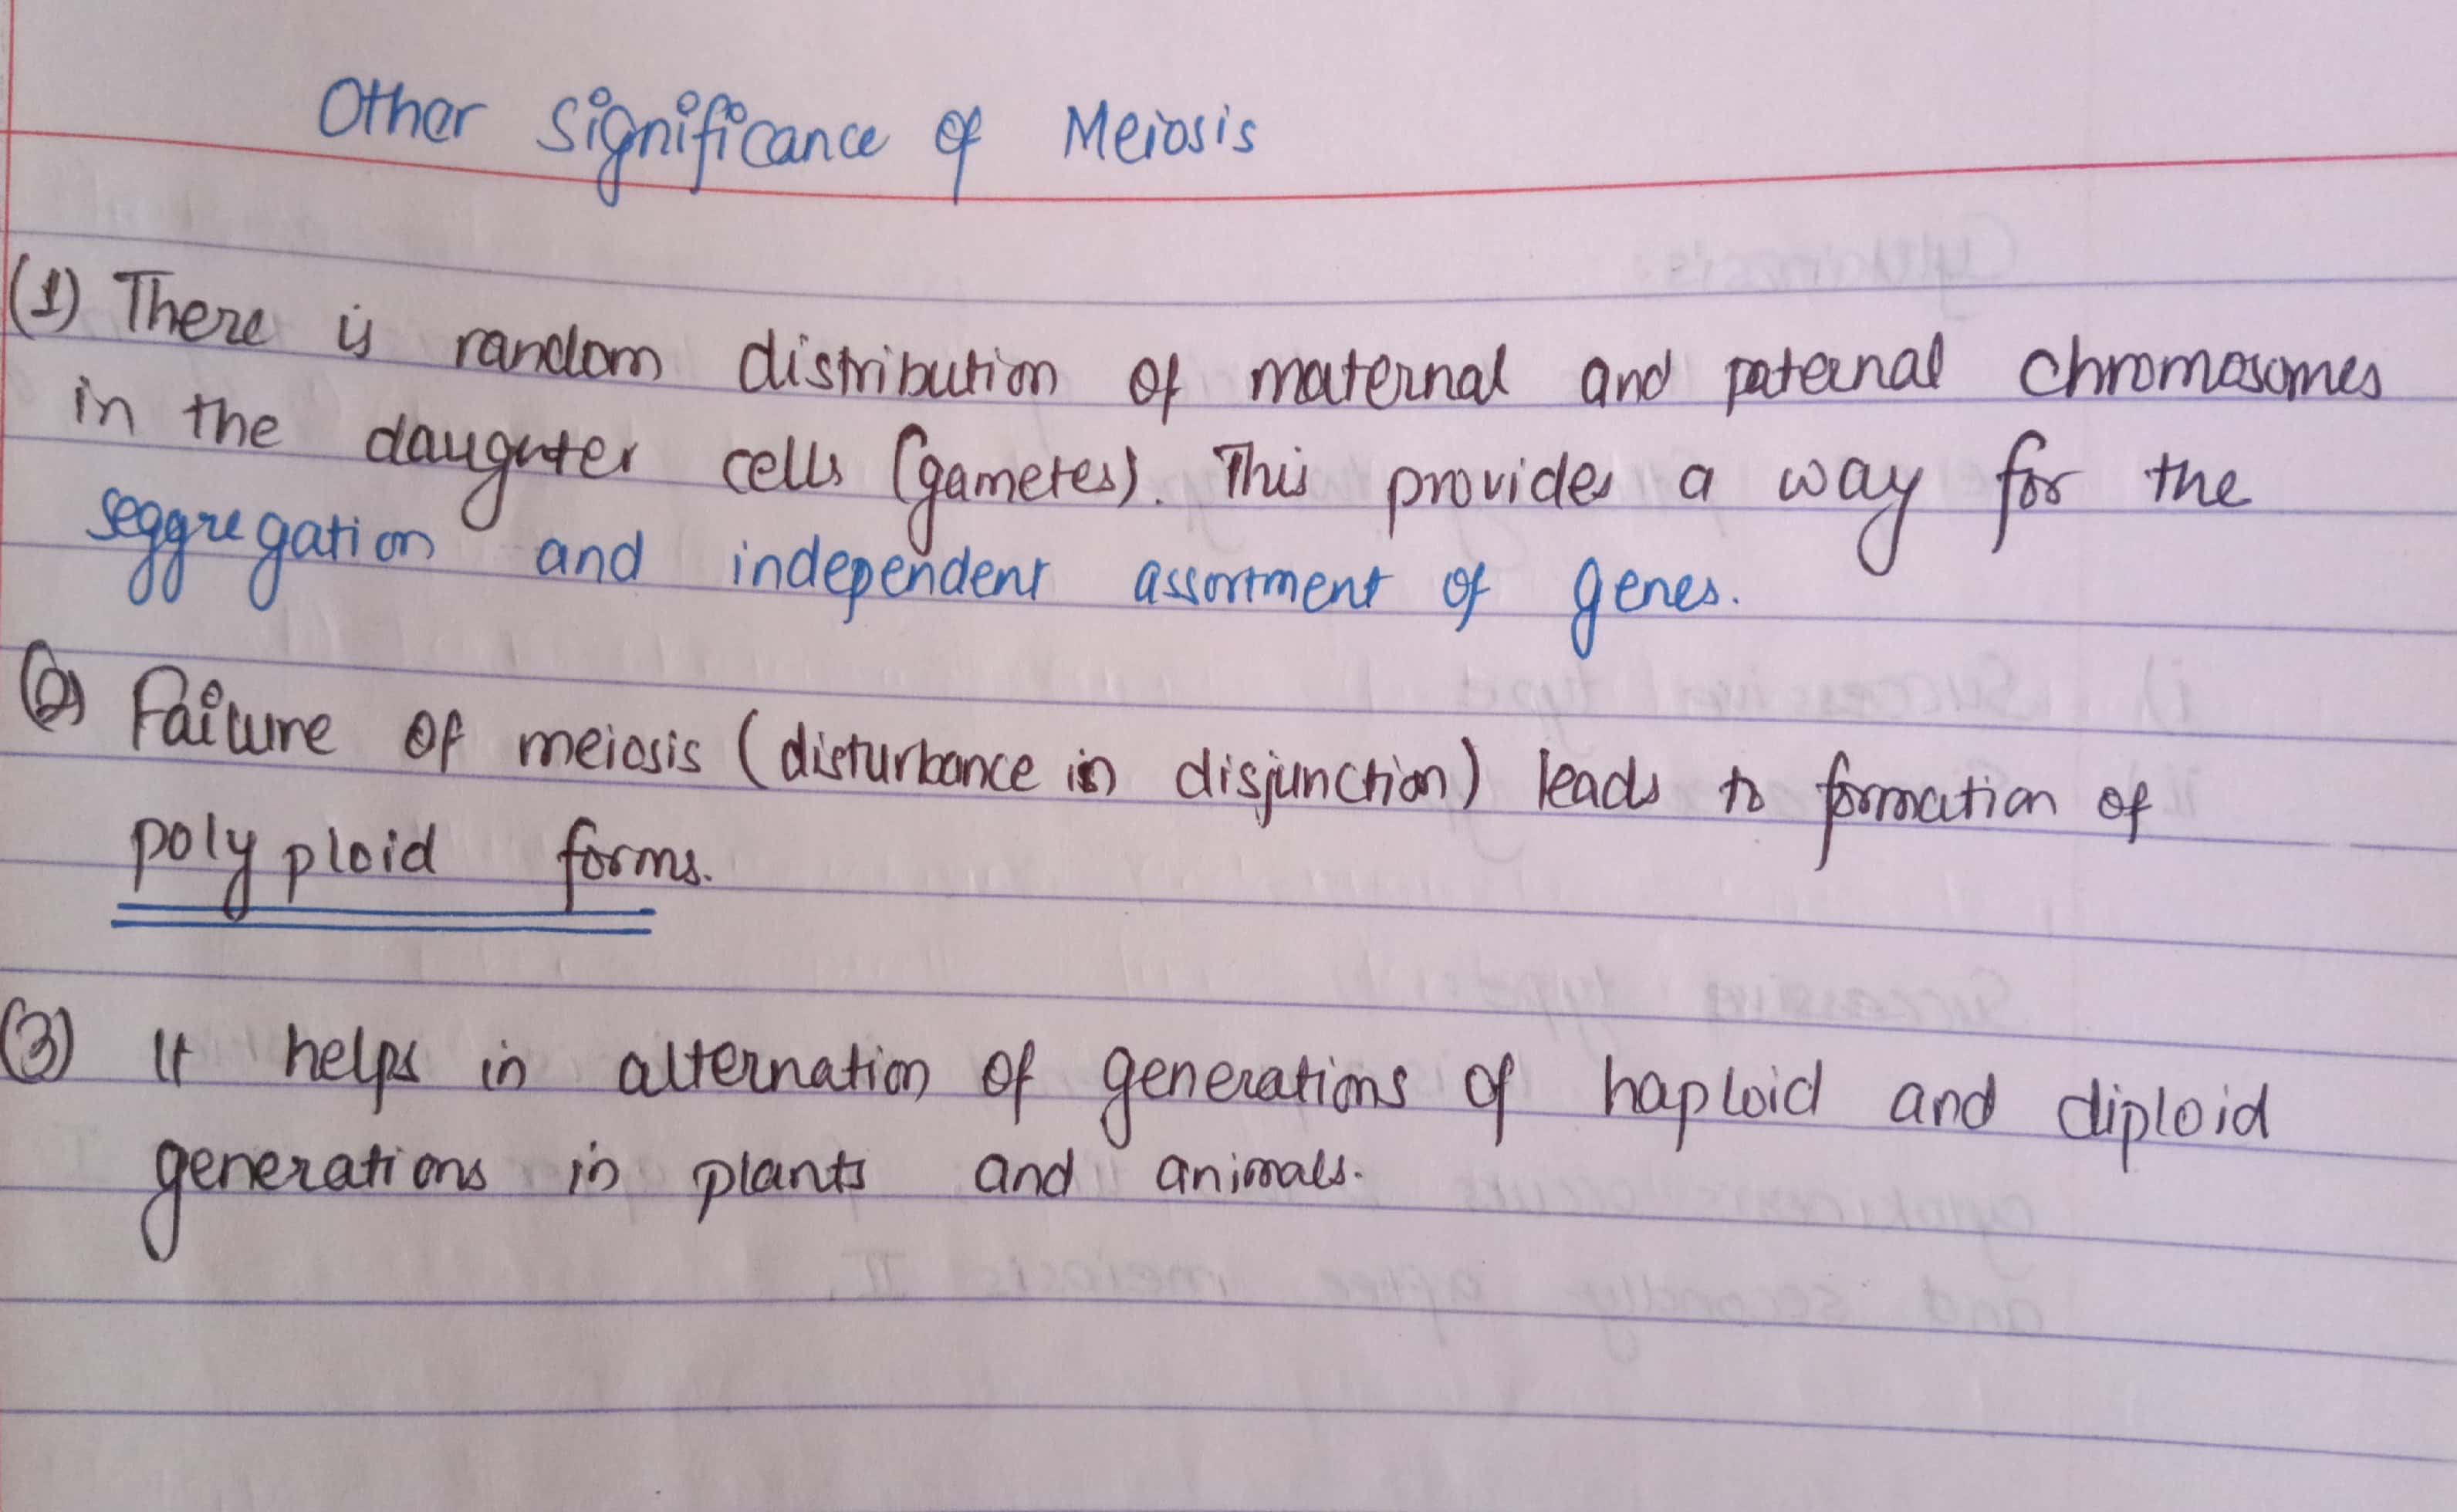 Other Significance of Meiosis
(1) There is random distribution of maternal and paternal chromosomes
in the daughter cells (gametes). This provides a way for the
seggregation and independent assortment of genes.
(2) Failure of meiosis (disturbance in disjunction) leads to formation of
polyploid forms.
(3) It helps in alternation of generations of haploid and diploid
generations in plants and animals.